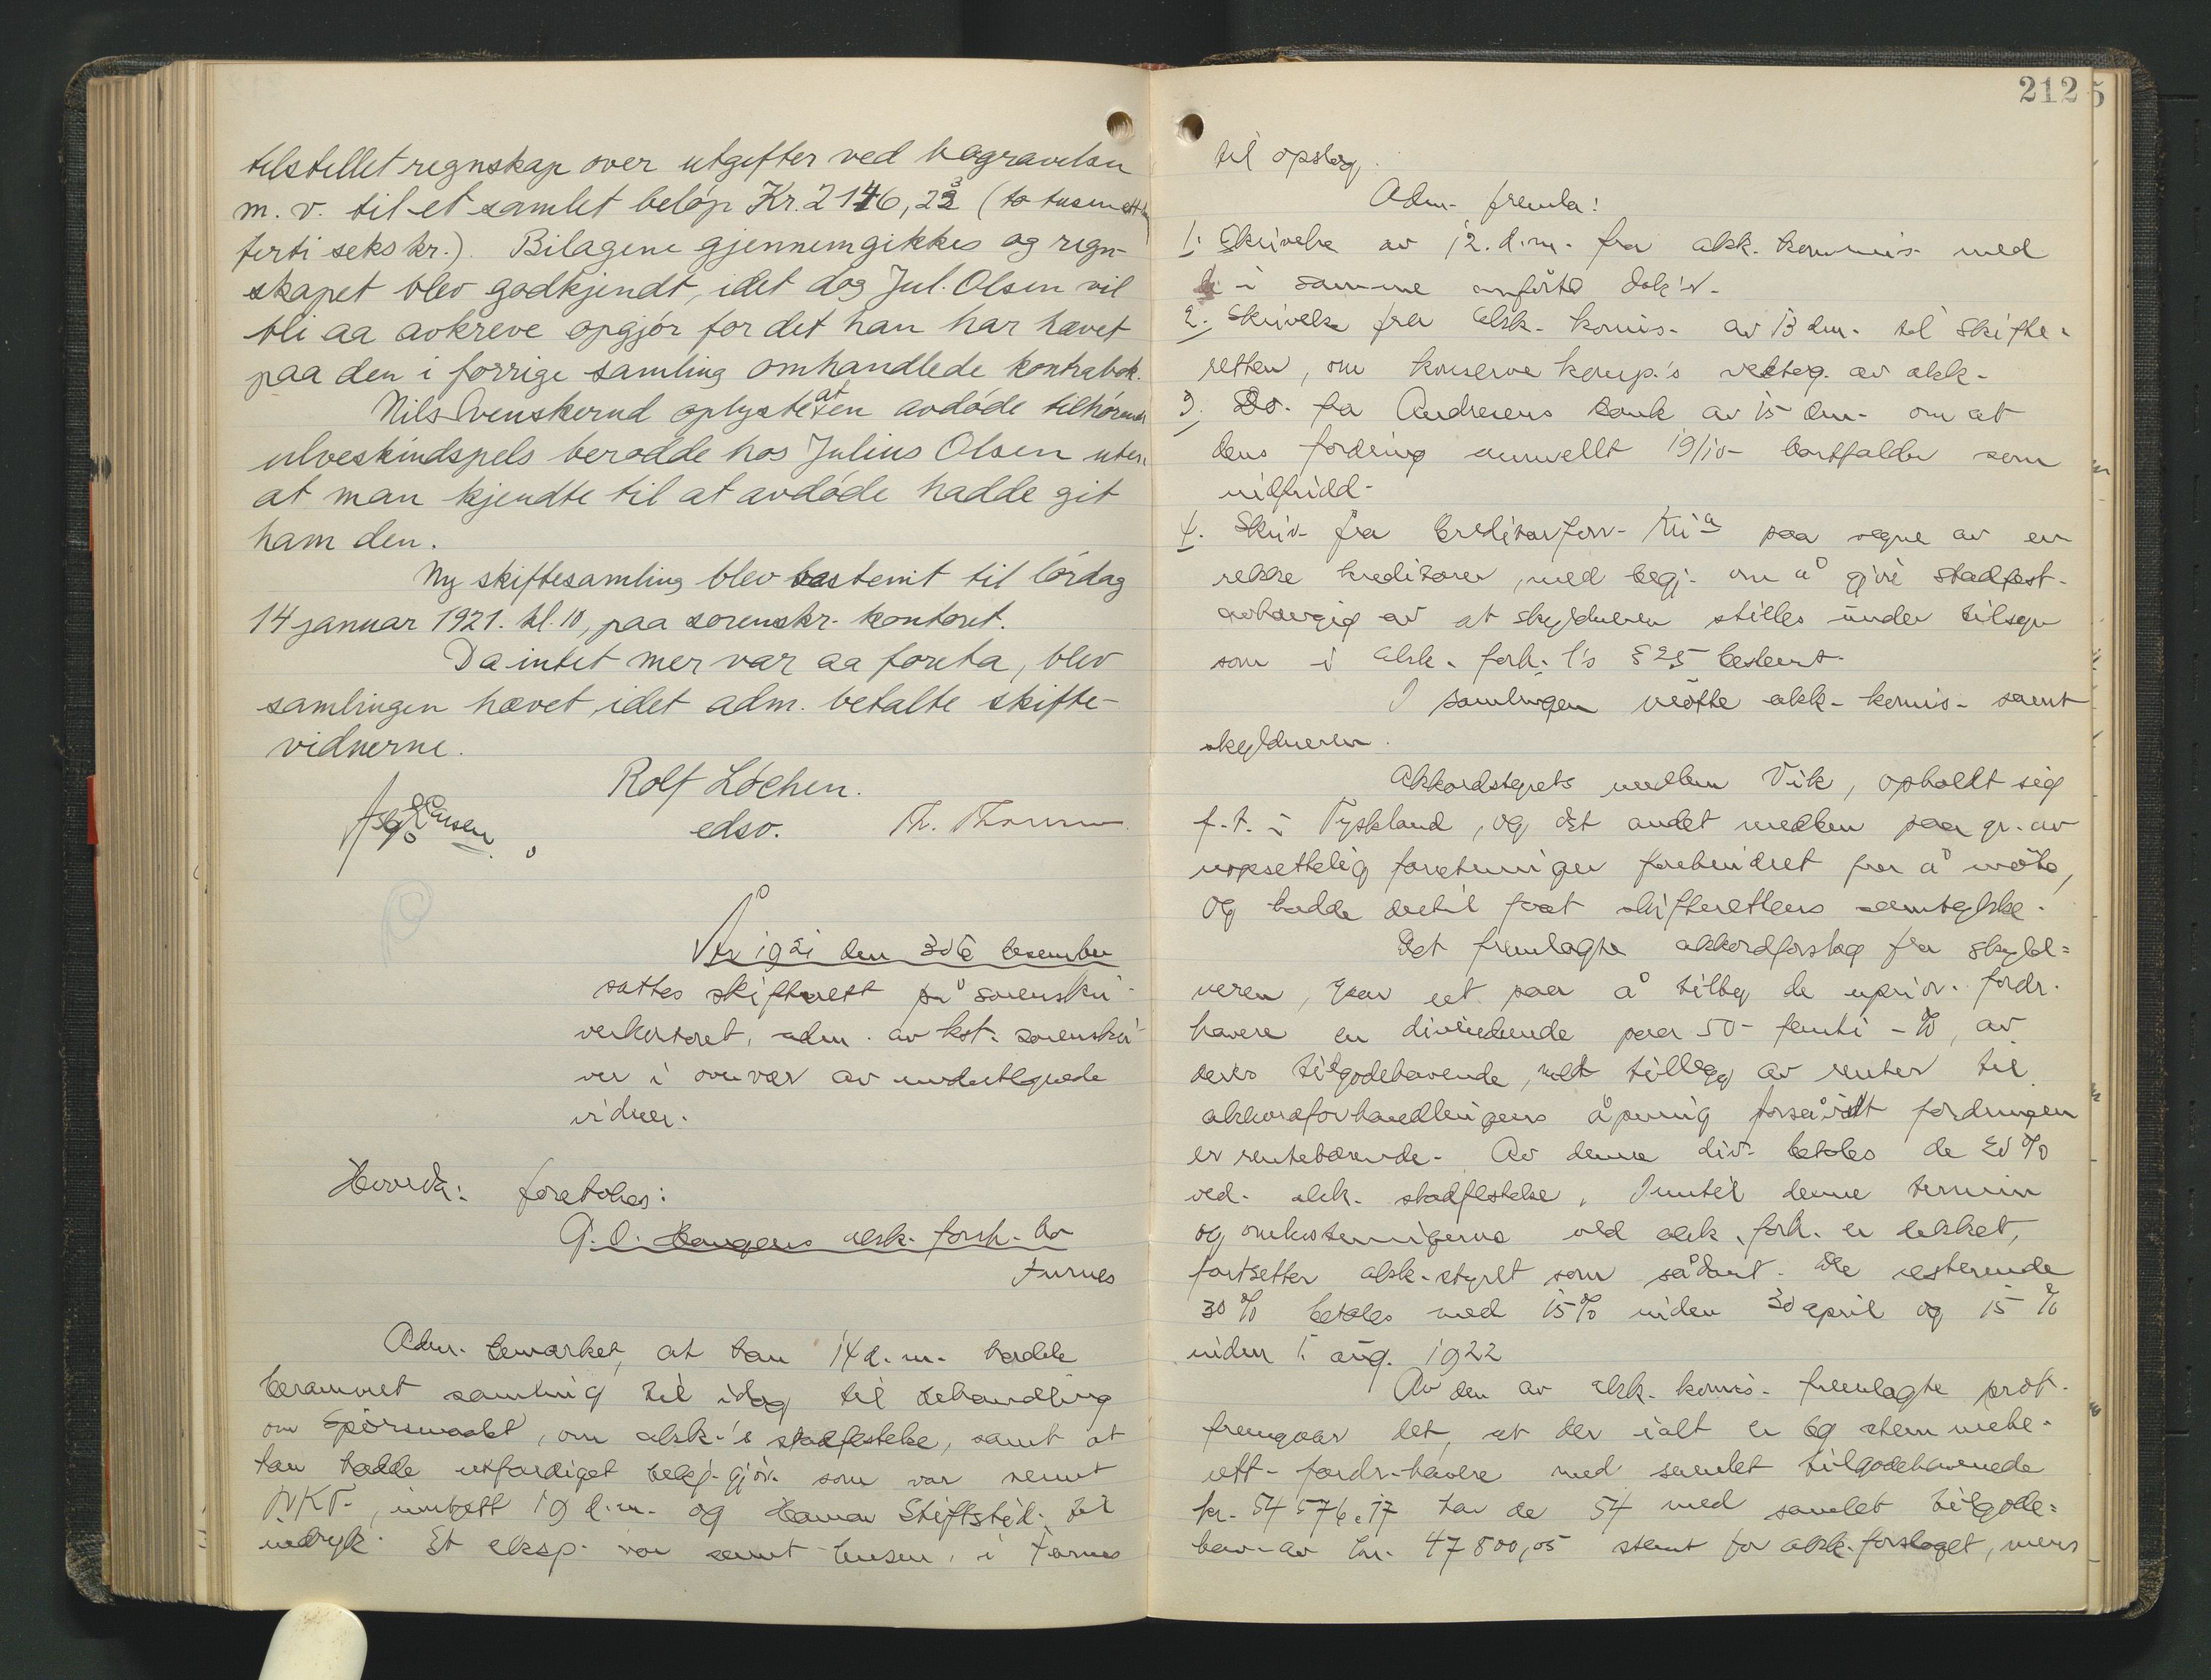 tilstillet regnskap over utgifter ved begravelsen
m. v. til et samlet beløp Kr. 2146,23 (to tusen ett hu
førti seks kr.). Bilagene gjennemgikkes og regn-
skapet blev godkjendt, idet dog Jul. Olsen vil
bli aa avkreve opgjør for det han har hævet
paa den i forrige samling omhandlede kontrabok.
Nils Svenskerud oplyste at en avdøde tilhørende
ulveskindspels berodde hos Julius Olsen uten
at man kjendte til at avdøde hadde git
ham den.
Ny skiftesamling blev bestemt til lørdag
14 januar 1921. kl. 10, paa sorenskr. kontoret.
Da intet mer var aa foreta, blev
samlingen hævet, idet adm. betalte skifte-
vidnerne.
Rolf Løchen.
edsv.
År 1921 den 30te desember
sattes skifterett på sorenskri-
verkontoret, adm. av kst. sorenskri-
ver i overvær av undertegnede
vidner.
Hvorda: foretokes:
G. O. Haugens akk. forh. bo
Furnes
Adm. bemærket, at han 14 d. m. hadde
berammet samling til idag til behandling
om spørsmaalet, om akk.'s stadfestelse, samt at
han hadde utfærdiget bekj. gjør. som var sendt
NKT., inntatt 19 d. m. og Hamar Stiftstid. til
indryk. Et eksp. var sendt lensm. i Furnes
212
til opslag.
Adm. fremla:
1. Skrivelse av 12. d. m. fra akk. kommis. med
de i samme anførte dok'r.
2. Skrivelse fra akk. komis. av 13 dm. til skifte-
retten, om konserve komp.'s vedtag. av akk.
3. Do. fra Andresens bank av 15 dm. om at
dens fordring anmeldt 19/10 bortfalder som
indfridd.
4. Skriv. fra Kreditorforr. Kria paa vegne av en
rekke kreditorer, med begj. om å gjøre stadfest.
avhængig av at skyldneren stilles under tilsyn
som i akk. forh. l's § 25 bestemt.
I samlingen møtte akk. komis. samt
skyldneren.
Akkordstyrets medlem Vik, opholdt sig
f. t. i Tyskland, og det andet medlem paa gr. av
uopsettelig foretninger forhindret fra å møte,
og hadde dertil faat skifterettens samtykke.
Det fremlagte akkordforslag fra skyld=
neren, gaar ut paa å tilby de uprior. fordr.
havere en dividende paa 50 - femti - %, av
deres tilgodehavende, med tillegg av renter til
akkordforhandlingens åpning forsåvidt fordringen
er rentebærende. Av denne div. betales de 20 %
ved. akk. stadfestelse. Inntil denne termin
og omkostningerne ved akk. forh. er dekket,
fortsetter akk. styret som sådant. De resterende
30 % betales med 15 % inden 30 april og 15 %
inden 1. aug. 1922
Av den av akk. komis. fremlagte prot.
fremgaar det, at der ialt er 69 stemmebe-
rett. fordr. havere med samlet tilgodehavende
kr. 54 576.17 har de 54 med samlet tilgode=
hav. av kr. 47 800,05 stemt for akk. forslaget, mens